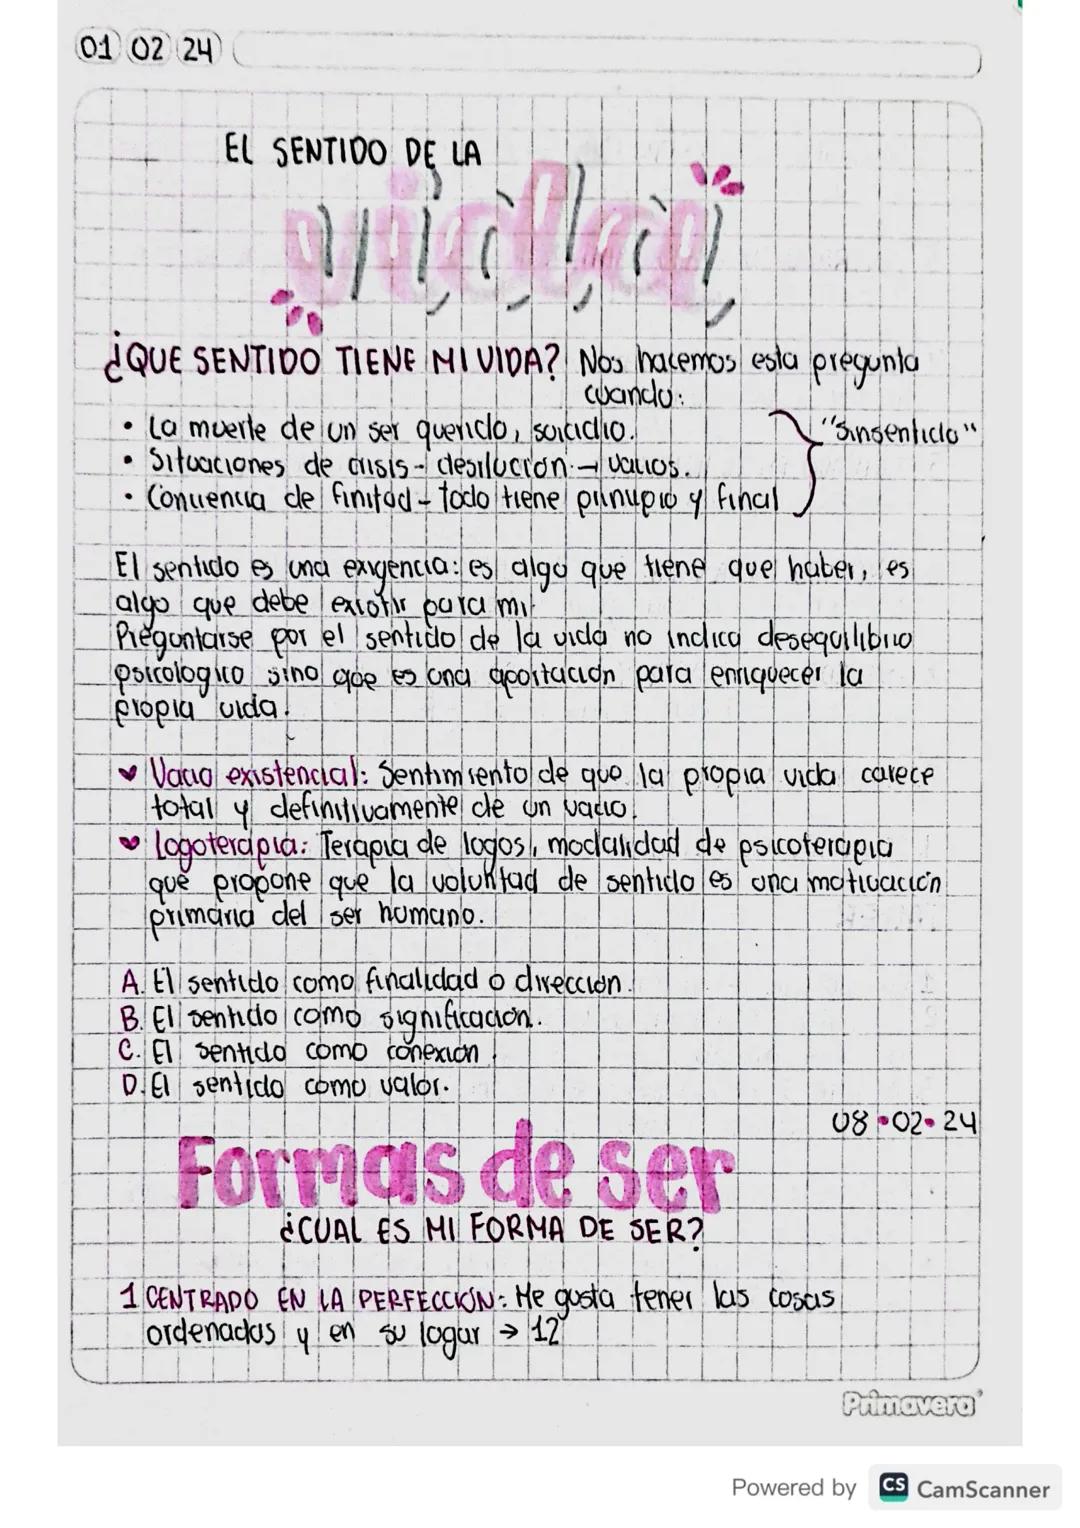 01 02 24
EL SENTIDO DE LA
vida
¿QUE SENTIDO TIENE MI VIDA? Nos hacemos esta pregunta
cuando:
• La muerte de un ser querido, suicidio.
• Situaciones de crisis - desilución → vacios.
• Conciencia de finitud - todo tiene principio y final
"Sinsentido"
El sentido es una exigencia: es algo que tiene que haber, es
algo que debe existir para mi.
Preguntarse por el sentido de la vida no indica desequilibrio
psicologico sino que es una aportación para enriquecer la
propia vida.
♥ Vacio existencial: Sentimiento de que la propia vida carece
total y definitivamente de un vacio.
♥ Logoterapia: Terapia de logos, modalidad de psicoterapia
que propone que la voluntad de sentido es una motivación
primaria del ser humano.
A. El sentido como finalidad o dirección.
B. El sentido como significación.
C. El sentido como conexion.
D. El sentido como valor.
08•02•24
Formas de ser
¿CUAL ES MI FORMA DE SER?
1 CENTRADO EN LA PERFECCIÓN: Me gusta tener las cosas
ordenadas y en su lugar → 12
Primavera
Powered by CS CamScanner